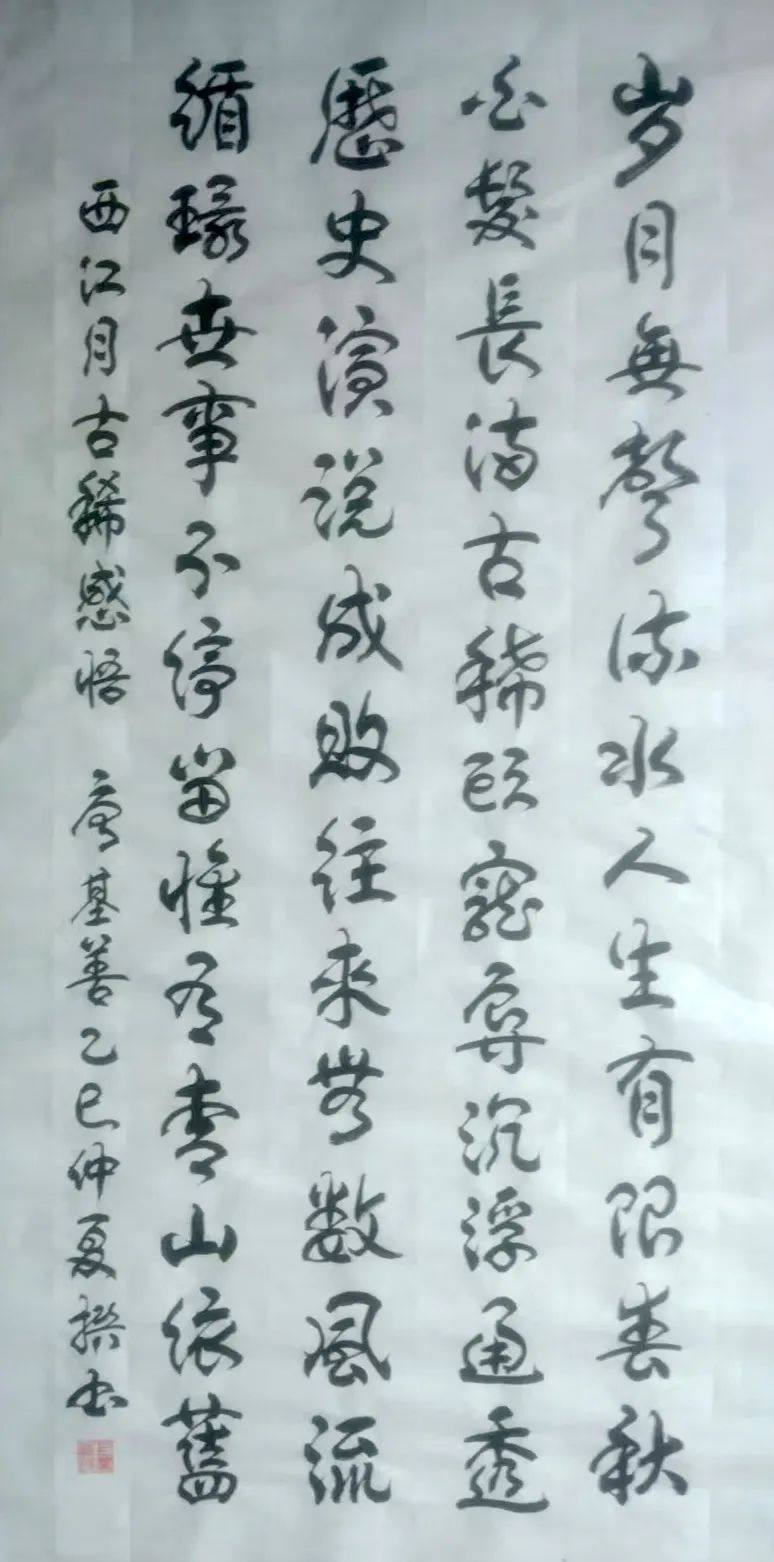 岁月無聲流水人生有限春秋
白髮長满古稀頭寵辱沉浮通透
歷史演说成敗往來無數風流
循環世事不停留惟有青山依舊
西江月古稀感悟 基善乙巳仲夏撰书